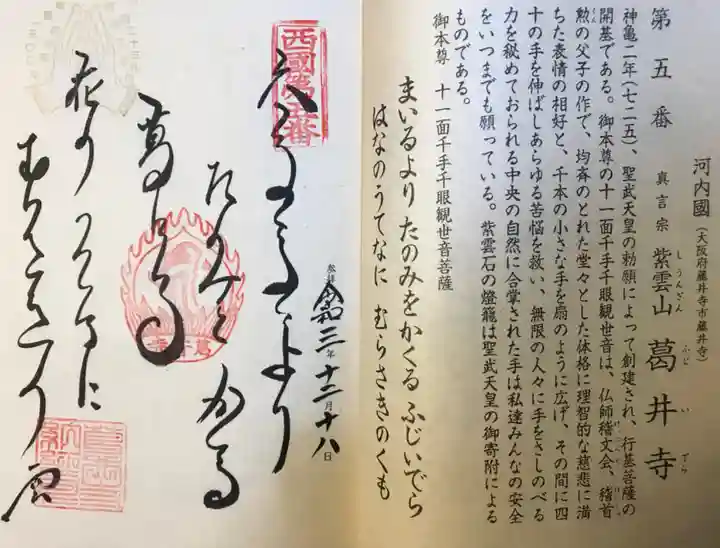 第五番
河内國（大阪府藤井寺市藤井寺）
真言宗 紫雲山 葛井寺
しうんざん ふじいでら
神亀二年（七二五）、聖武天皇の勅願によって創建され、行基菩薩の
開基である。御本尊の十一面千手千眼観世音は、仏師稽文会、稽首
勲の父子の作で、均斉のとれた堂々とした体格に理智的な慈悲に満
ちた表情の相好と、千本の小さな手を扇のように広げ、その間に四
十の手を伸ばしあらゆる苦悩を救い、無限の人々に手をさしのべる
力を秘めておられる中央の自然に合掌された手は私達みんなの安全
をいつまでも願っている。紫雲石の燈籠は聖武天皇の御寄附による
ものである。
御本尊 十一面千手千眼観世音菩薩
まいるより たのみをかくる ふじいでら
はなのうてなに むらさきのくも
西國第五番
参拝 令和三年十二月十八日
まゐるより
たのみをかくる
葛井寺
花のうてなに
むらさきの雲